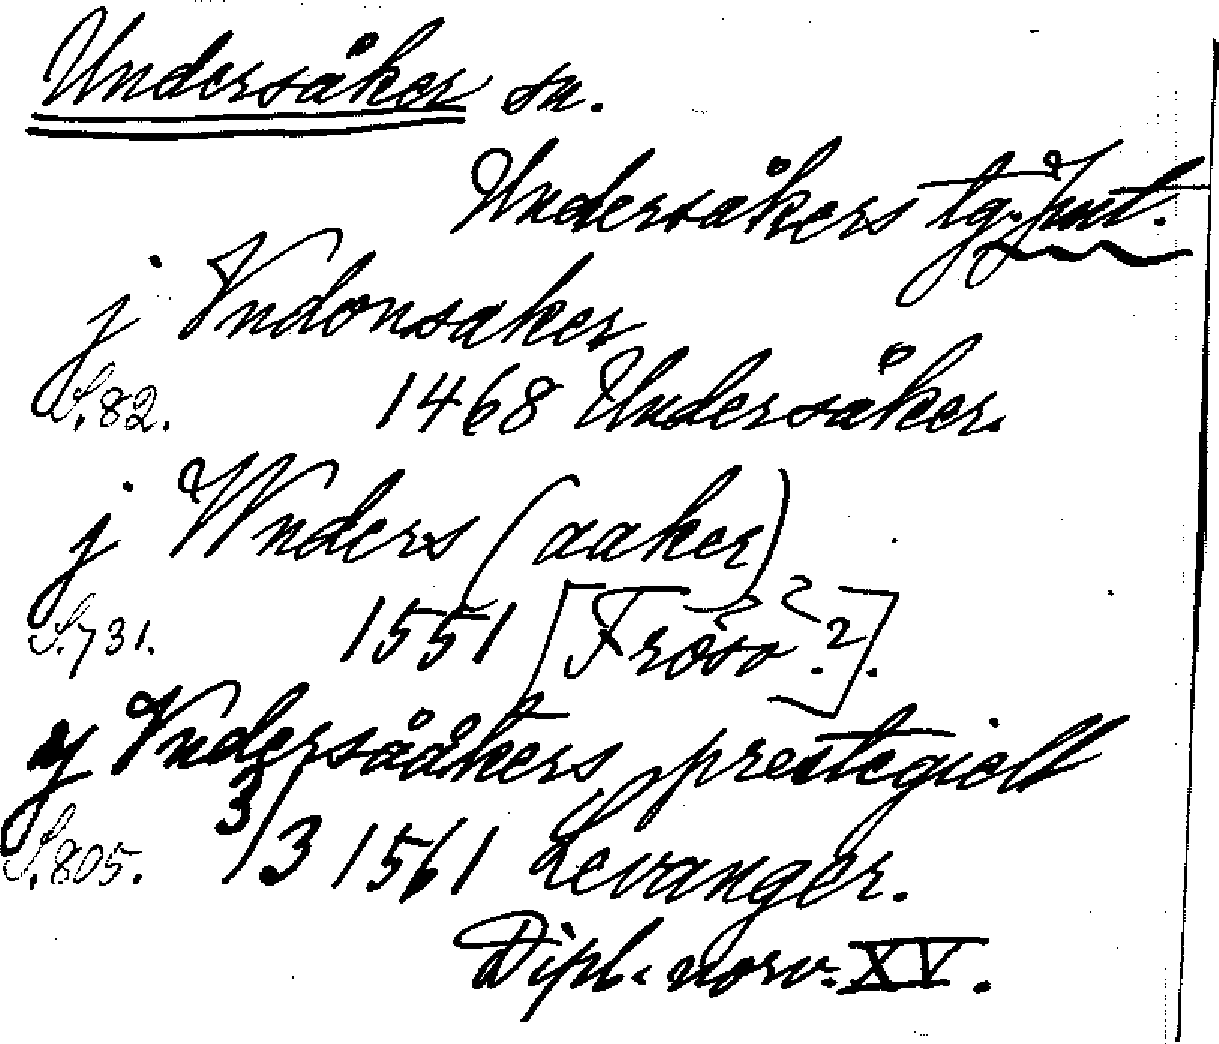 Undersåker sn.
Undersåkers tg. Jmt.
j Vndonsaker
S. 82. 1468 Undersåker.
j Wnders (aaker)
S. 731. 1551 [Frösö?].
y Vndersååkers prestegiell
S. 805. 3/3 1561 Levanger.
Dipl. norv. XV.